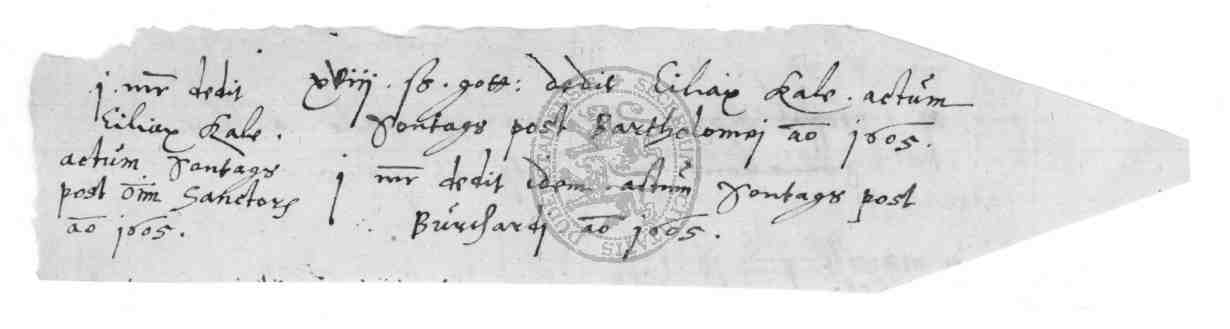 j. mr dedit
Ciliax Kale.
actum Sontags
post oim Sanctor
ao 1605.
xviij. ß. gott: dedit Ciliax Kale. actum
Sontags post Bartholomei ao 1605.
j mr dedit idem. actum Sontags post
Burchardi ao 1605.